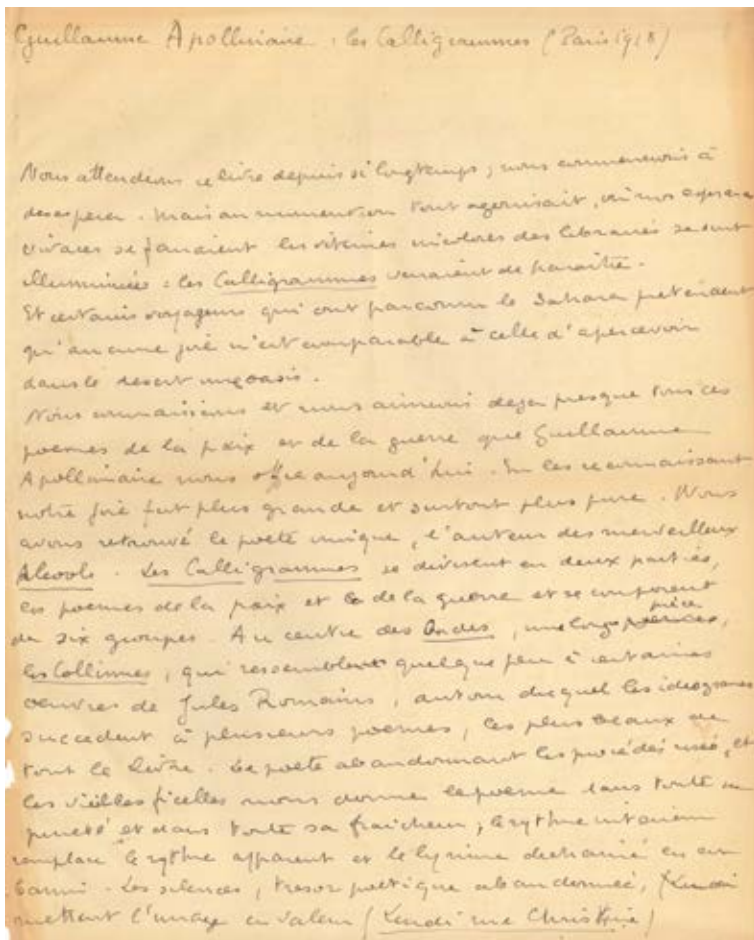 Guillaume Apollinaire : les Calligrammes (Paris 1918)
Nous attendions ce livre depuis si longtemps ; nous commencions à
desesperer. Mais au moment où tout agonisait, où nos espoirs
vivaces se fanaient les vitrines des libraires se sont
illuminées : les Calligrammes venaient de paraître.
Et certains voyageurs qui ont parcouru le Sahara pretendent
qu'aucune joie n'est comparable à celle d'apercevoir
dans le desert une oasis.
Nous connaissions et nous aimions deja presque tous ces
poemes de la paix et de la guerre que Guillaume
Apollinaire nous offre aujourd'hui. En les reconnaissant
notre joie fut plus grande et surtout plus pure. Nous
avons retrouvé le poete unique, l'auteur des merveilleux
Alcools. Les Calligrammes se divisent en deux parties,
les poemes de la paix et de la guerre et se composent
de six groupes. Au centre des Ondes, une long pièce,
les Collines, qui ressemblent quelque peu à certaines
oeuvres de Jules Romains, autour duquel les ideogrammes
succedent à plusieurs poemes, les plus beaux de
tout le livre. Le poete abandonnant les procédés usés, et
les vieilles ficelles nous donne le poeme dans toute sa
pureté et dans toute sa fraicheur ; le rythme interieur
remplace le rythme apparent et le lyrisme dechainé en est
banni. Les silences, tresor poetique abandonné,
mettant l'image en valeur (Lundi rue Christine)